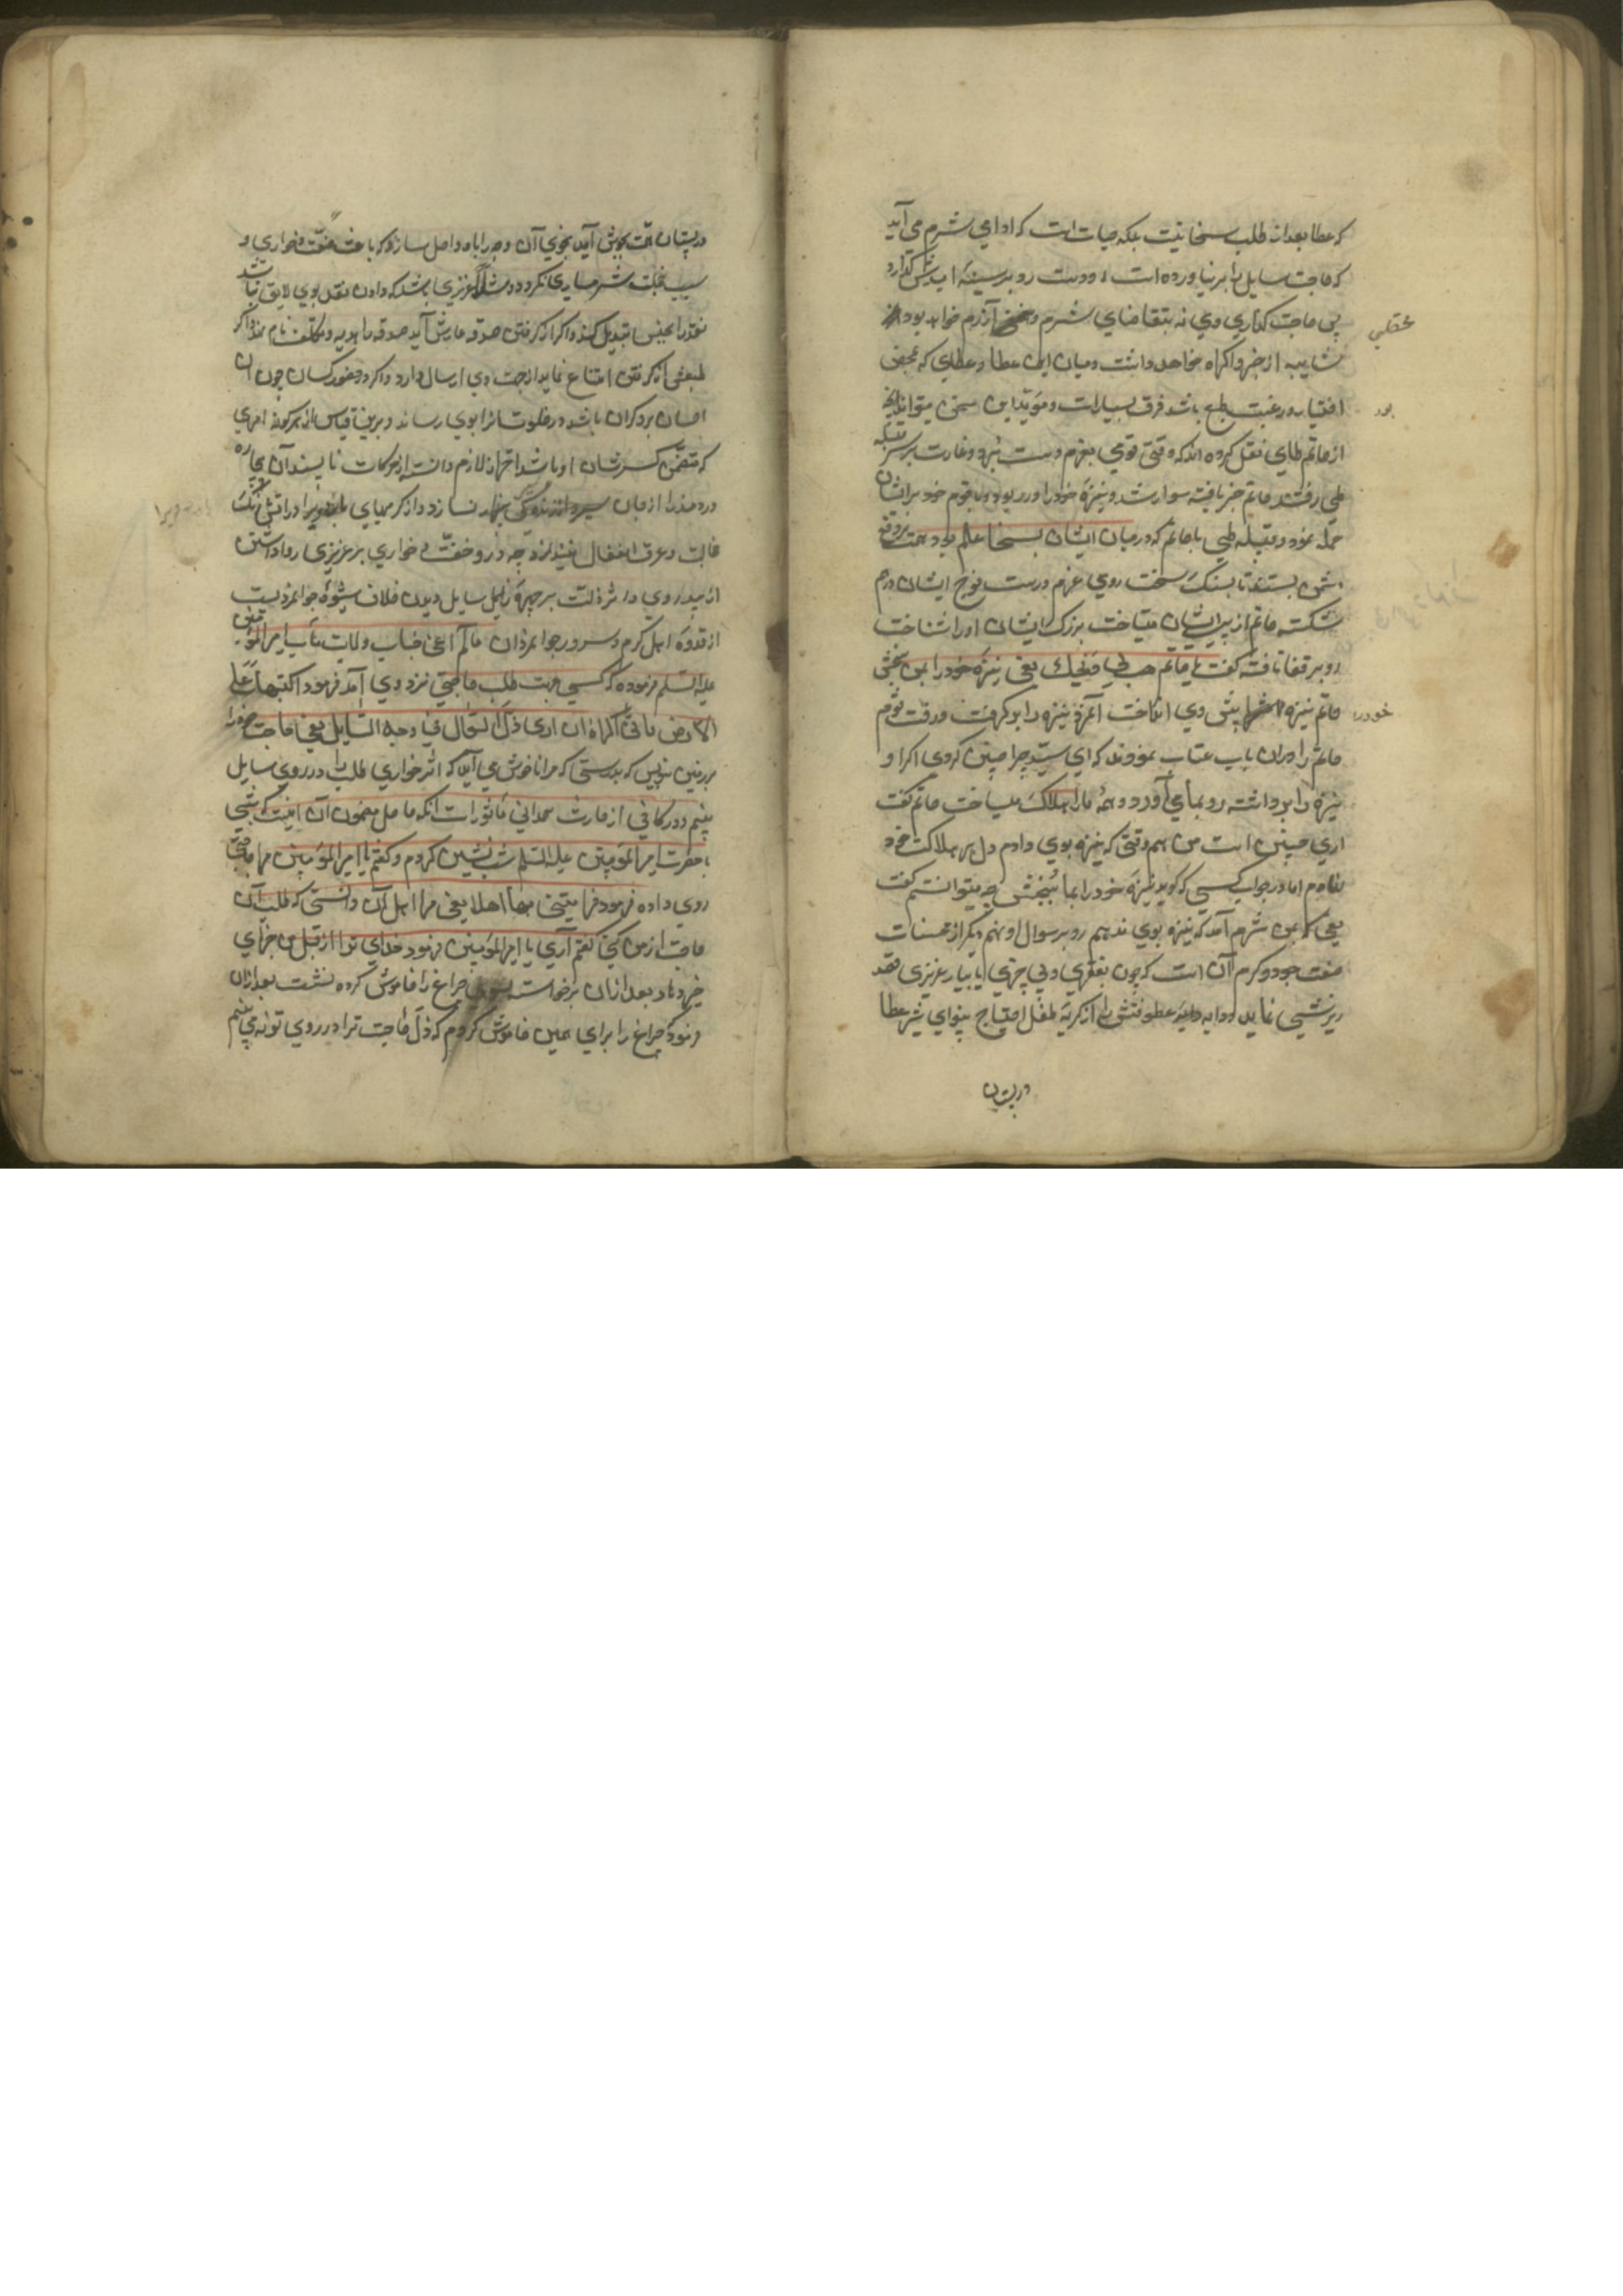 که عطا بعد از طلب سخا نیست بلکه حیات است که او ادای شرم می آید
که حاجت سایل را بر نیاورده است و دست رو بر سینه
پی حاجت کذاری وی نه بتقاضای شرم و آزرم خواهد بود
محقلی
شایبه از جبر و اکراه خواهد داشت و میان این عطا و عطای که بمحض
اختیار و رغبت طبع باشد فرق بسیارست و مؤید این سخن میتواند
بود
از حاتم طای نقل کرده اند که وقتی قومی بعزم دست برد و غارت بر سر قبیله
طی رفتند حاتم خبر یافته سوار شد و نیزه خود را در ربود و با قوم خود بر ایشان
حمله نمود و قبیله طی با حاتم که در میان ایشان بسخا علم بود همت بر دفع
دشمن بستند تا بسنک سخت روی عزم درست فوج ایشان درهم
شکسته حاتم از پی ایشان میتاخت بزرک ایشان او را شناخت
رو بر قفا تافته کفت یا حاتم هب لی رمحک یعنی نیزه خود را بمن بخش
حاتم نیزه پیش وی انداخت آنمرد نیزه را بر کرفت و رفت قوم
خود را
حاتم را در ان باب عتاب نمودند که ای سید چرا چنین کردی اکر او
نیزه را برداشته رو بما می آورد و همه ما را هلاک میساخت حاتم کفت
اری چنین است من هم وقتی که نیزه بوی دادم دل بر هلاکت خود
نهادم اما در جواب کسی که کوید نیزه خود را بما ببخش چه میتوانستم کفت
یعنی بمن شرم آمد که نیزه بوی ندهم رو بر سوال او نهم دیکر از محسنات
صفت جود و کرم آن است که چون بفقری و بی چیزی یا بیار عزیزی قصد
ریزشی نماید و دایه عطوفتش را از کریه طفل احتیاج بینوای شیر عطا
در پستان
در پستان همت بجوش آید بنحوی آن وجه را باو واصل سازد که باعث خفت و خواری و
سبب خجلت و شرمساری نکردد و مثلا اکر عزیزی باشد که دادن نقد بوی لایق نباشد
نقد را بجنس تبدیل کند و اکر از کرفتن صدقه عارش آید صدقه را هدیه و تکلف نام نهد و اکر
طبعش از کرفتن امتناع نماید از جهت وی ارسال دارد و اکر در حضور کسان چون
احسان بر وی کران باشد در خلوت انرا بوی رساند و برین قیاس از هر کونه امری
که متضمن کسر شان او باشد احتراز لازم دانسته از حرکات ناپسند آن بیچاره
درد مند را از جان سیر و از زندکی بیزار نسازد و از کرمیهای
خجالت و عرق انفعال نیندازد چه درد خفت و خواری بر عزیزی روا داشتن
از بیدردی و اثر ذلت بر چهره سایل دیدن خلاف شیوه جوانمردیست
از قدوه اهل کرم و سرور جوانمردان عالم اعنی جناب ولایت مآب امیر المؤمنین
علیه السلم فرموده که کسی جهت طلب حاجتی نزد وی آمد فرمود اکتبها علی
الارض فانی اکره ان اری ذل السوال فی وجه السایل یعنی حاجت خود را
بر زمین بنویس که بدرستی که مرا ناخوش می آید که اثر خواری طلب را در روی سایل
بینم و در کافی از حارث همدانی مأثور است انکه حاصل مضمون آن اینست که شبی
با حضرت امیر المؤمنین علیه السلم شب نشینی کردم و کفتم یا امیر المؤمنین مرا حاجتی
روی داده فرمود فرایتنی لها اهلا یعنی مرا اهل آن دانستی که طلب آن
حاجت از من کنی کفتم آری یا امیر المؤمنین فرمود خدای ترا از قبل من جزای
خیر دهاد بعد از ان برخاست بسوی چراغ را خاموش کرده نشست بعد از ان
فرمود چراغ را برای همین خاموش کردم که ذل حاجت ترا در روی تو نه بینم